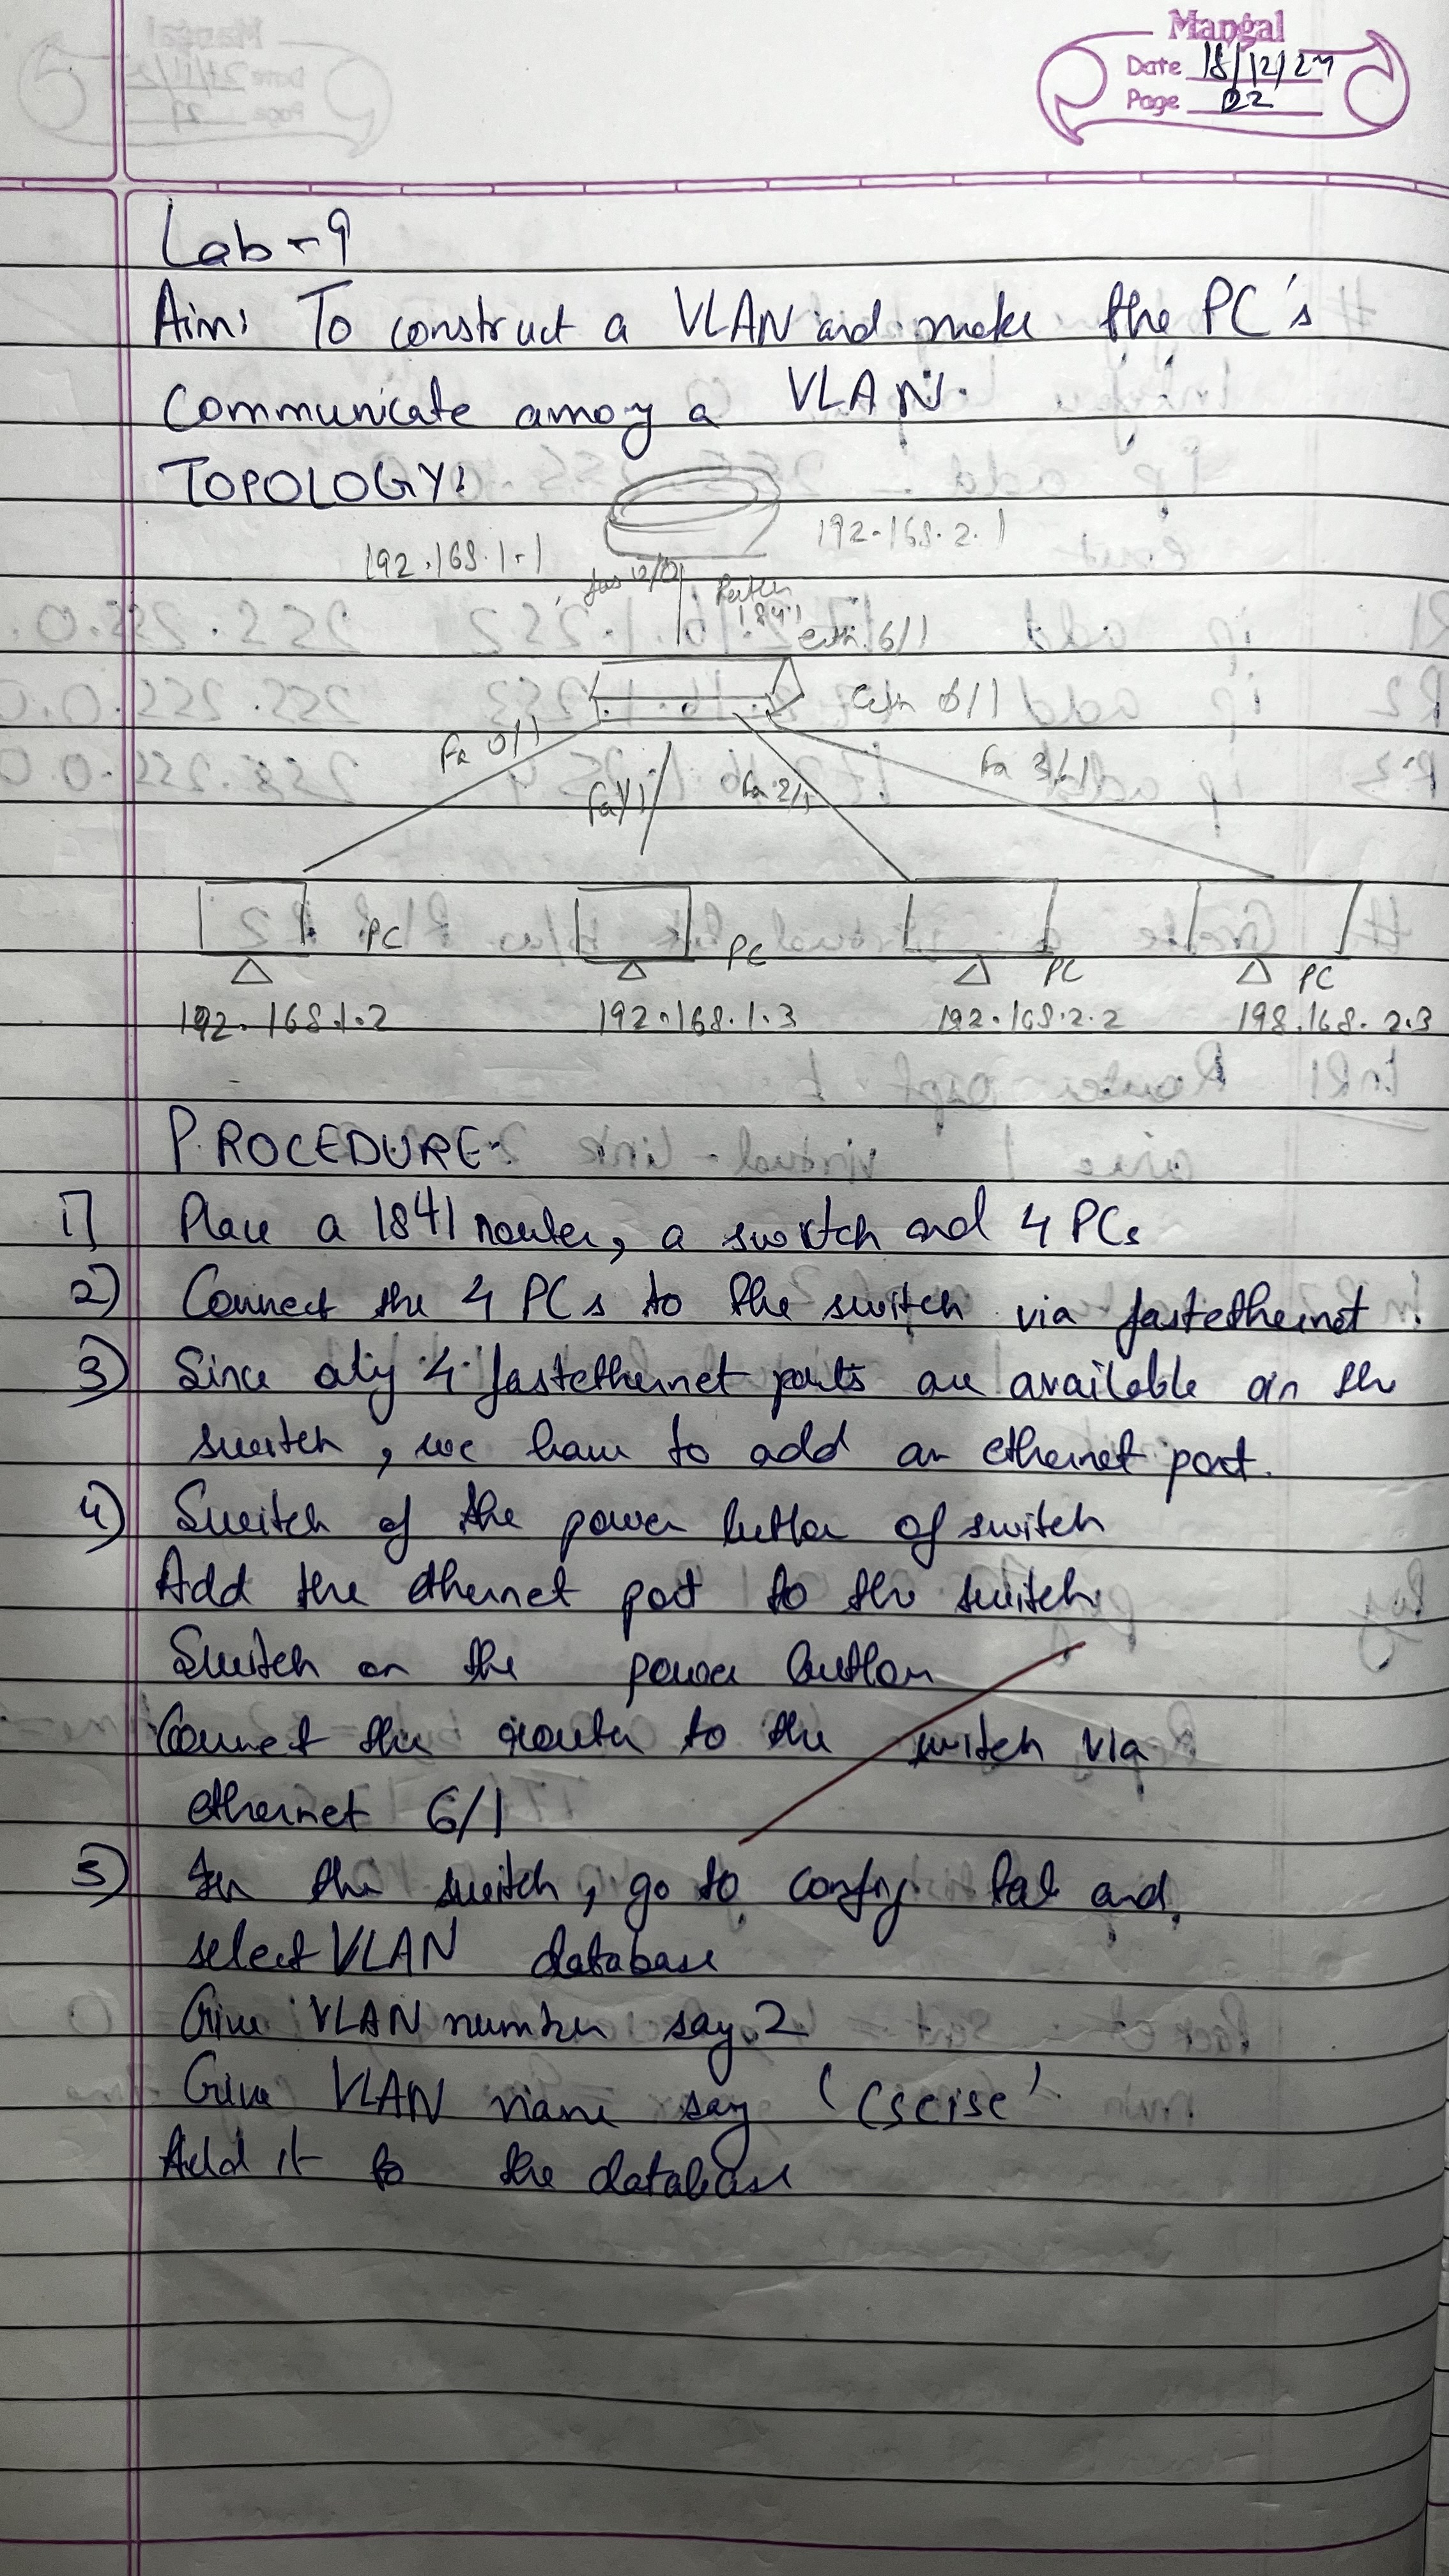 Mangal
Date 18/12/24
Page 22
Lab - 9
Aim: To construct a VLAN and make the PC's
Communicate among a VLAN.
TOPOLOGY:
192.168.1.1
192.168.2.1
Router
1841
eth 6/1
eth 6/1
Fa 0/1
Fa 1/1
Fa 2/1
Fa 3/1
PC
PC
PC
PC
192.168.1.2
192.168.1.3
192.168.2.2
198.168.2.3
PROCEDURE:
1] Place a 1841 router, a switch and 4 PCs
2) Connect the 4 PCs to the switch via fastethernet.
3) Since only 4 fastethernet ports are available on the
switch, we have to add an ethernet port.
4) Switch of the power button of switch
Add the ethernet port to the switch
Switch on the power button
Connect the router to the switch via
ethernet 6/1
5) In the switch, go to config tab and
select VLAN database
Give VLAN number say 2
Give VLAN name say 'Cseise'
Add it to the database